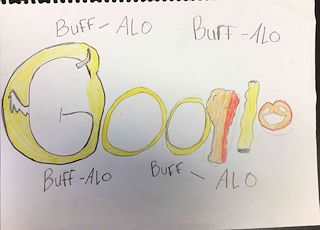 BUFF - ALO BUFF-ALO
Google
BUFF-ALO BUFF - ALO